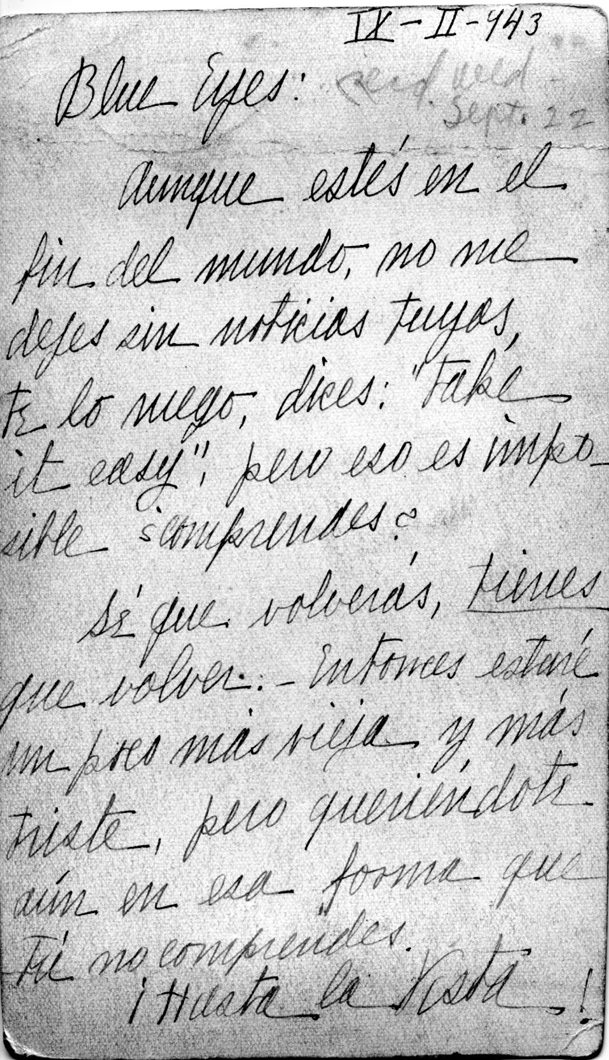 IX-II-943
recd. wed.
Sept. 22
Blue Eyes:
Aunque estés en el
fin del mundo, no me
dejes sin noticias tuyas,
te lo ruego, dices: "take
it easy", pero eso es impo-
sible ¿comprendes?
Sé que volverás, tienes
que volver.- Entonces estaré
un poco más vieja y más
triste, pero queriéndote
aún en esa forma que
tú no comprendes.
¡Hasta la Vista!